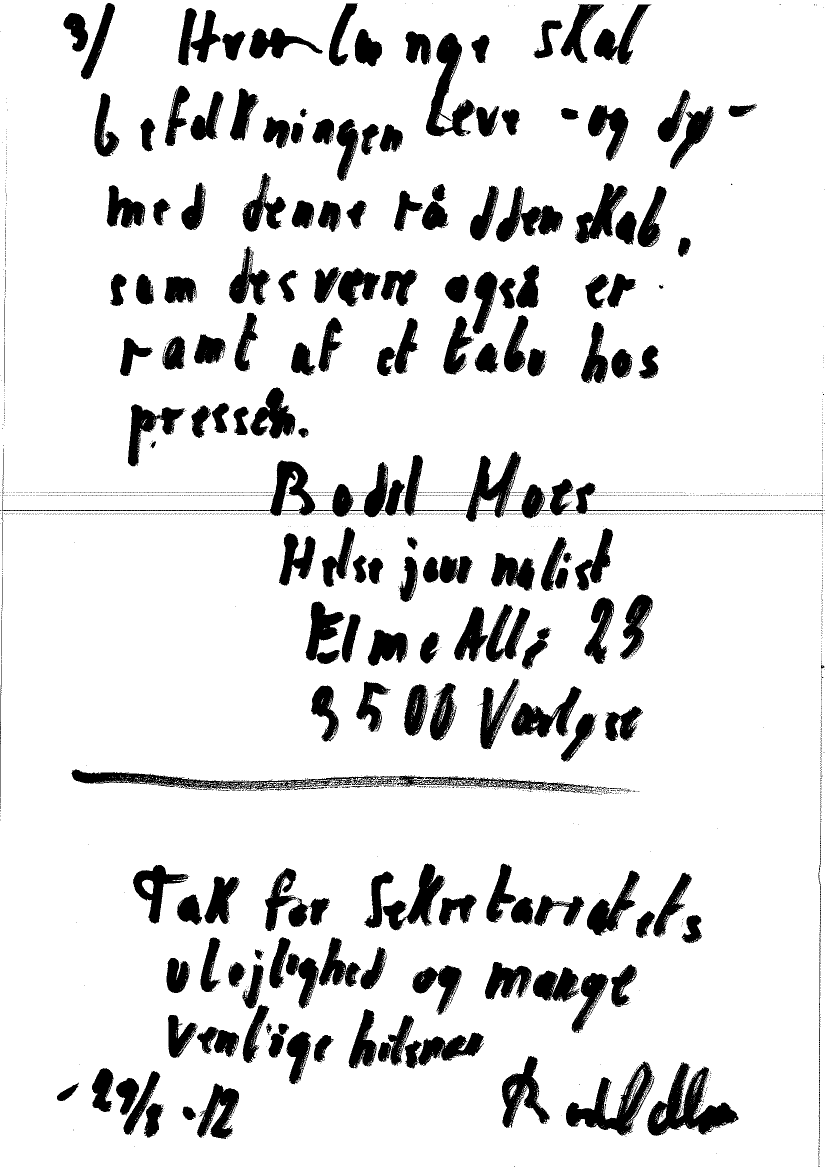 3/ Hvor længe skal
befolkningen leve - og dø -
med denne råddenskab,
som desværre også er
ramt af et tabu hos
pressen.
Bodil Moes
Helsejournalist
Elme Alle 23
3500 Værløse
Tak for Sekretariatets
ulejlighed og mange
venlige hilsner
Bodil Moes